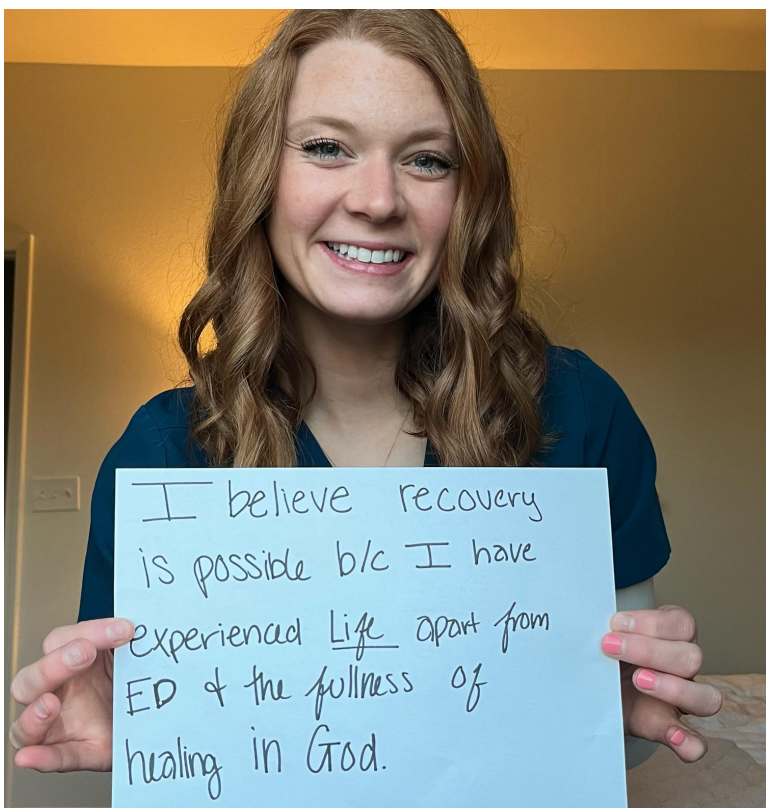 I believe recovery
is possible b/c I have
experienced Life apart from
ED & the fullness of
healing in God.